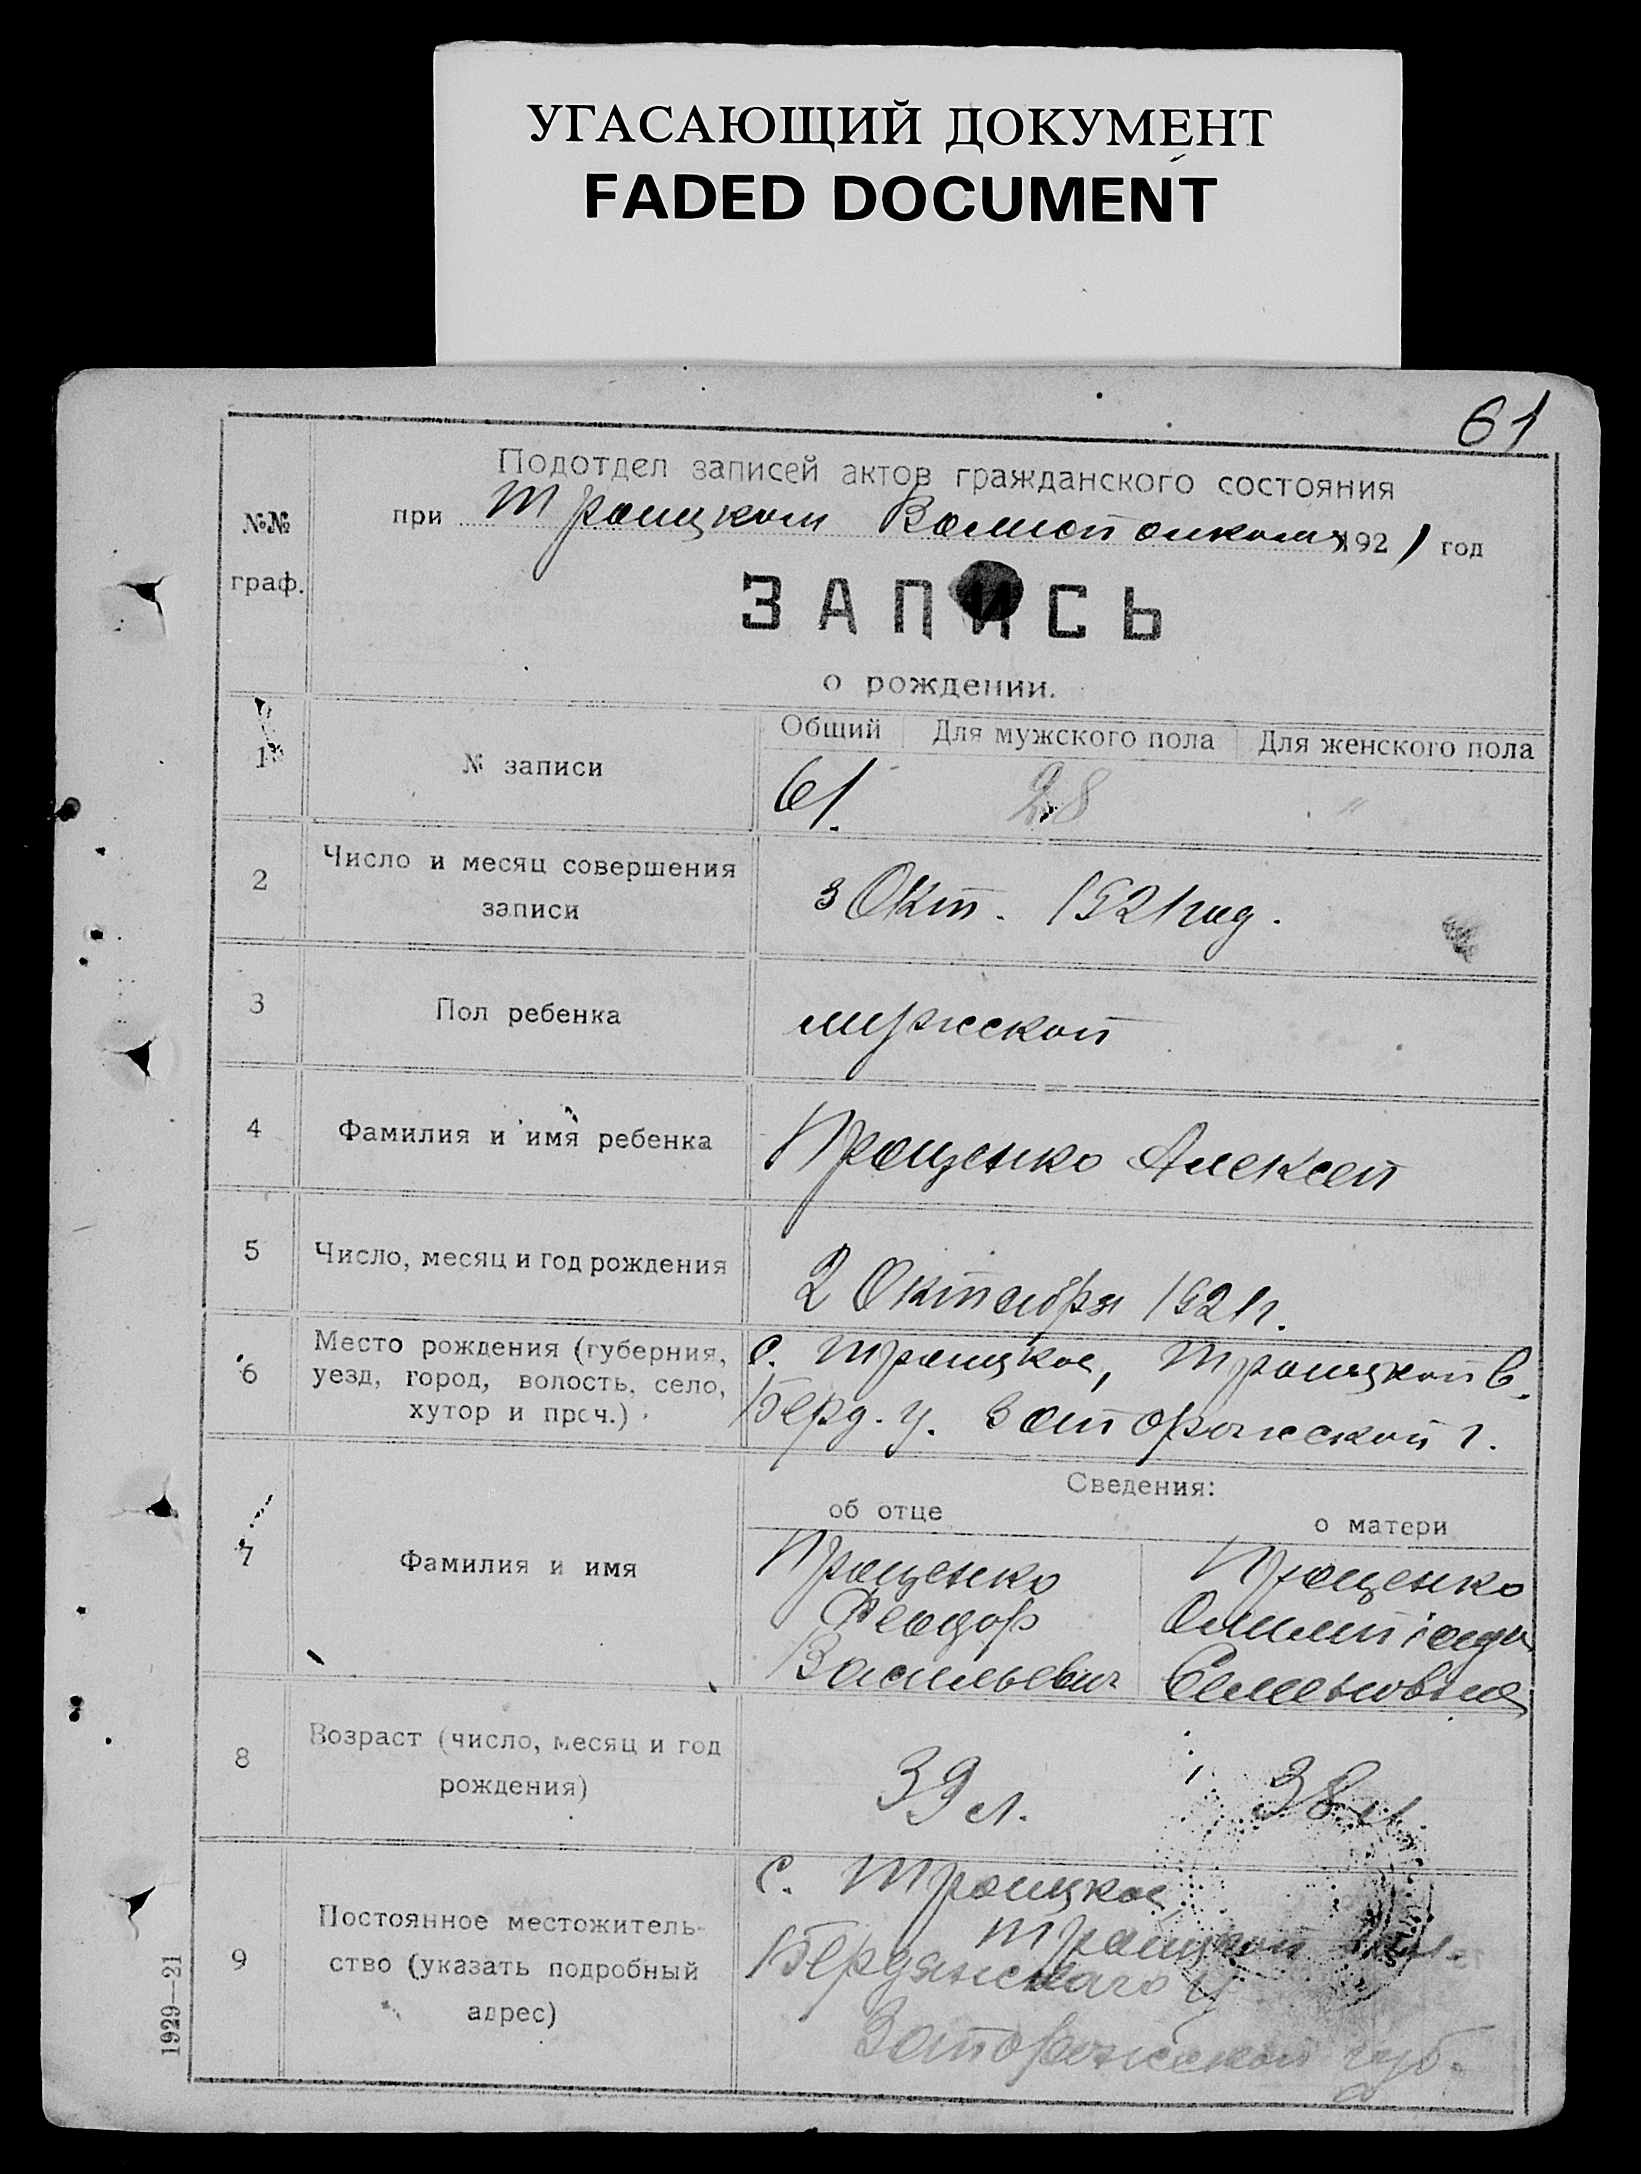 УГАСАЮЩИЙ ДОКУМЕНТ
FADED DOCUMENT
61
№№ граф.
Подотдел записей актов гражданского состояния
при Троицком Волисполкоме 1921 год
ЗАПИСЬ
о рождении.
1
№ записи
Общий Для мужского пола Для женского пола
61. 28 "
2
Число и месяц совершения
записи
3 Окт. 1921 год.
3
Пол ребенка
мужской
4
Фамилия и имя ребенка
Проценко Алексей
5
Число, месяц и год рождения
2 Октября 1921 г.
6
Место рождения (губерния,
уезд, город, волость, село,
хутор и проч.)
с. Троицкое, Троицкой в.
Берд. у. Запорожской г.
Сведения:
об отце
о матери
7
Фамилия и имя
Проценко
Феодор
Васильевич
Проценко
Олимпіада
Семеновна
8
Возраст (число, месяц и год
рождения)
39 л.
38 л.
9
Постоянное местожитель-
ство (указать подробный
адрес)
с. Троицкое,
Троицкой вол.
Бердянскаго у
Запорожской губ.
1929—21